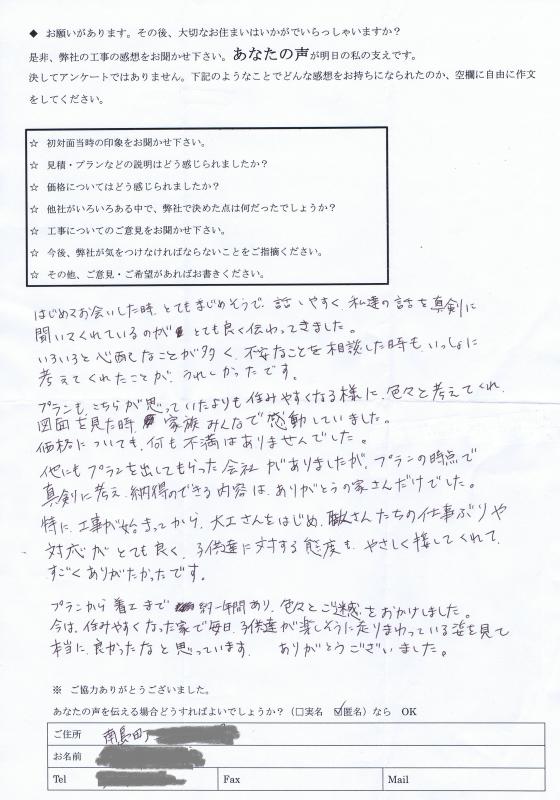 ◆ お願いがあります。その後、大切なお住まいはいかがでいらっしゃいますか？
是非、弊社の工事の感想をお聞かせ下さい。あなたの声が明日の私の支えです。
決してアンケートではありません。下記のようなことでどんな感想をお持ちになられたのか、空欄に自由に作文
をしてください。
☆ 初対面当時の印象をお聞かせ下さい。
☆ 見積・プランなどの説明はどう感じられましたか？
☆ 価格についてはどう感じられましたか？
☆ 他社がいろいろある中で、弊社で決めた点は何だったでしょうか？
☆ 工事についてのご意見をお聞かせ下さい。
☆ 今後、弊社が気をつけなければならないことをご指摘ください。
☆ その他、ご意見・ご希望があればお書きください。
はじめてお会いした時、とてもまじめそうで、話しやすく、私達の話を真剣に
聞いてくれているのが とても良く伝わってきました。
いろいろと心配なことが多く、不安なことを相談した時も、いっしょに
考えてくれたことが、うれしかったです。
プランも、こちらが思っていたよりも住みやすくなる様に、色々と考えてくれ、
図面を見た時、家族みんなで感動していました。
価格についても、何も不満はありませんでした。
他にもプランを出してもらった会社がありましたが、プランの時点で
真剣に考え、納得のできる内容は、ありがとうの家さんだけでした。
特に、工事が始まってから、大工さんをはじめ、職人さんたちの仕事ぶりや
対応がとても良く、子供達に対する態度も、やさしく接してくれて、
すごくありがたかったです。
プランから着工まで 約一年間あり、色々とご迷惑をおかけしました。
今は、住みやすくなった家で毎日、子供達が楽しそうに走りまわっている姿を見て
本当に、良かったなと思っています。 ありがとうございました。
※ ご協力ありがとうございました。
あなたの声を伝える場合どうすればよいでしょうか？（□実名 ☑匿名）なら OK
ご住所 南島田町
お名前
Tel Fax Mail